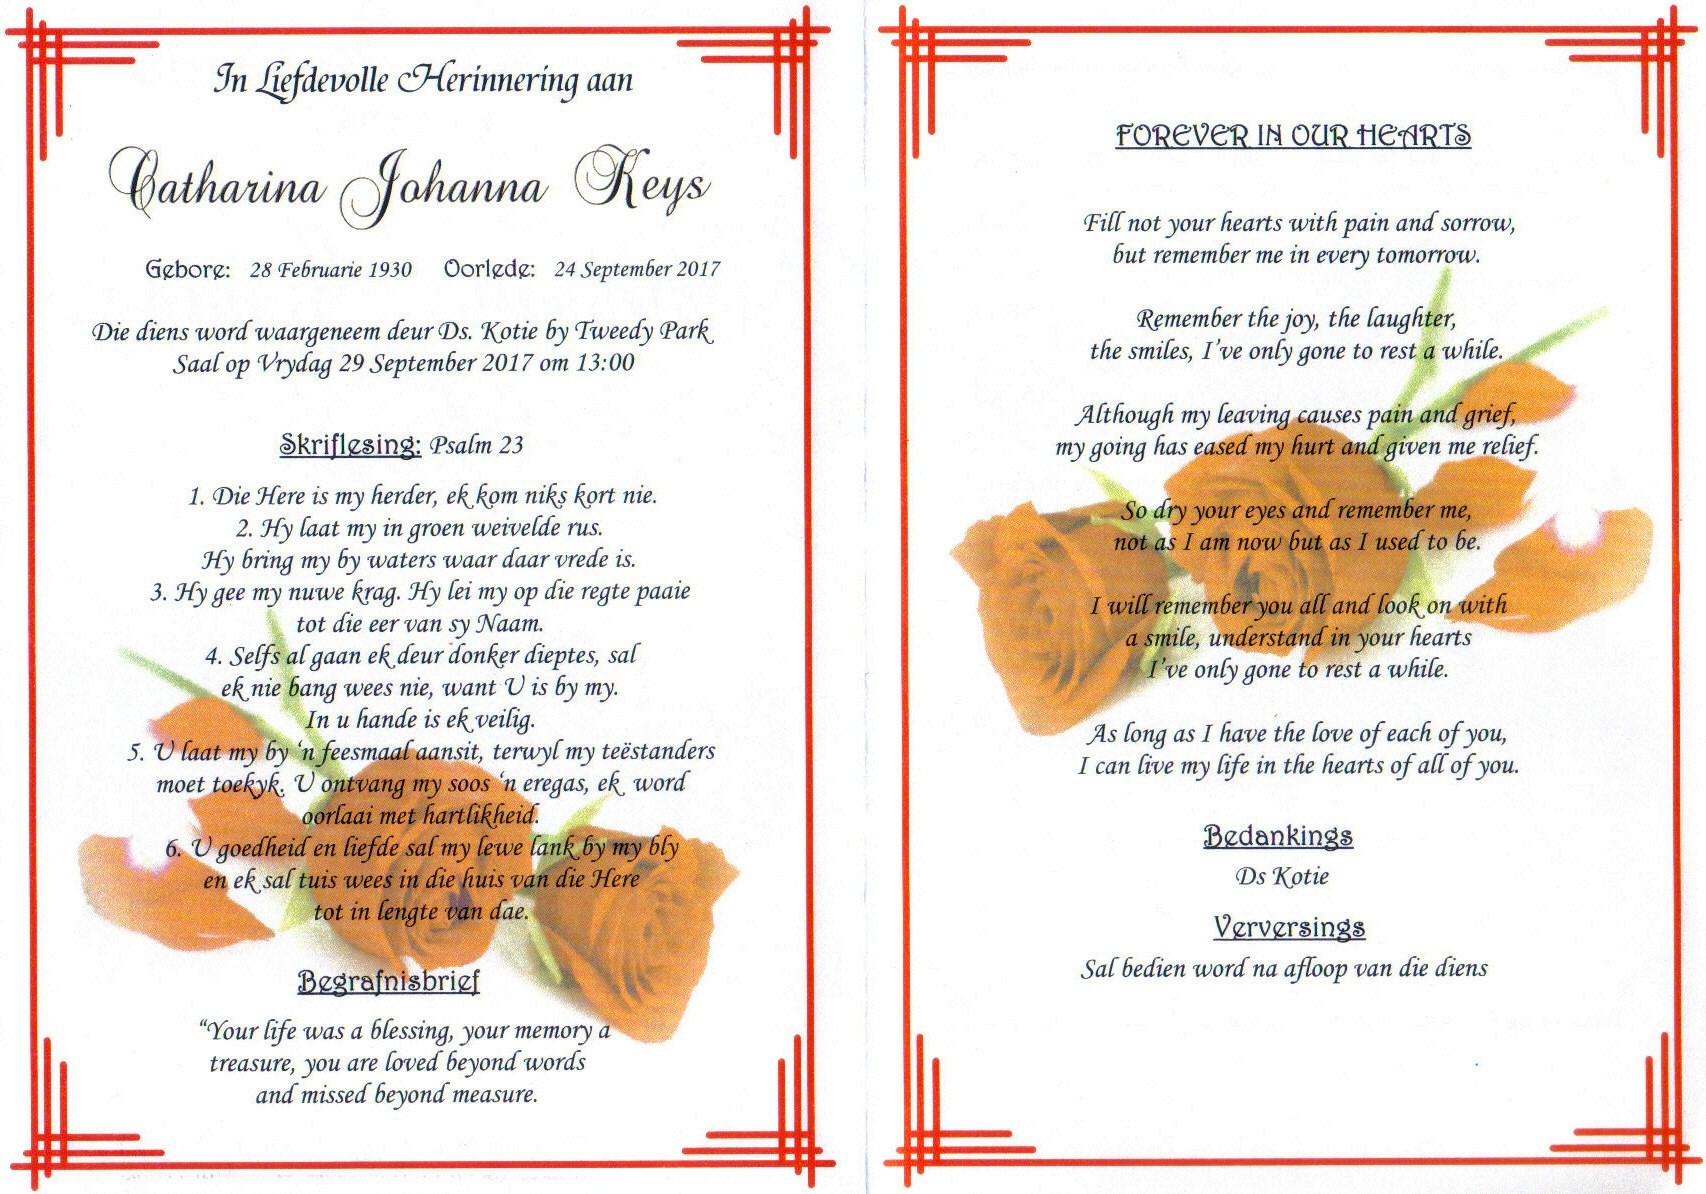 In Liefdevolle Herinnering aan
Catharina Johanna Keys
Gebore: 28 Februarie 1930 Oorlede: 24 September 2017
Die diens word waargeneem deur Ds. Kotie by Tweedy Park
Saal op Vrydag 29 September 2017 om 13:00
Skriflesing: Psalm 23
1. Die Here is my herder, ek kom niks kort nie.
2. Hy laat my in groen weivelde rus.
Hy bring my by waters waar daar vrede is.
3. Hy gee my nuwe krag. Hy lei my op die regte paaie
tot die eer van sy Naam.
4. Selfs al gaan ek deur donker dieptes, sal
ek nie bang wees nie, want U is by my.
In u hande is ek veilig.
5. U laat my by ‘n feesmaal aansit, terwyl my teëstanders
moet toekyk. U ontvang my soos ‘n eregas, ek word
oorlaai met hartlikheid.
6. U goedheid en liefde sal my lewe lank by my bly
en ek sal tuis wees in die huis van die Here
tot in lengte van dae.
Begrafnisbrief
“Your life was a blessing, your memory a
treasure, you are loved beyond words
and missed beyond measure.
FOREVER IN OUR HEARTS
Fill not your hearts with pain and sorrow,
but remember me in every tomorrow.
Remember the joy, the laughter,
the smiles, I’ve only gone to rest a while.
Although my leaving causes pain and grief,
my going has eased my hurt and given me relief.
So dry your eyes and remember me,
not as I am now but as I used to be.
I will remember you all and look on with
a smile, understand in your hearts
I’ve only gone to rest a while.
As long as I have the love of each of you,
I can live my life in the hearts of all of you.
Bedankings
Ds Kotie
Verversings
Sal bedien word na afloop van die diens